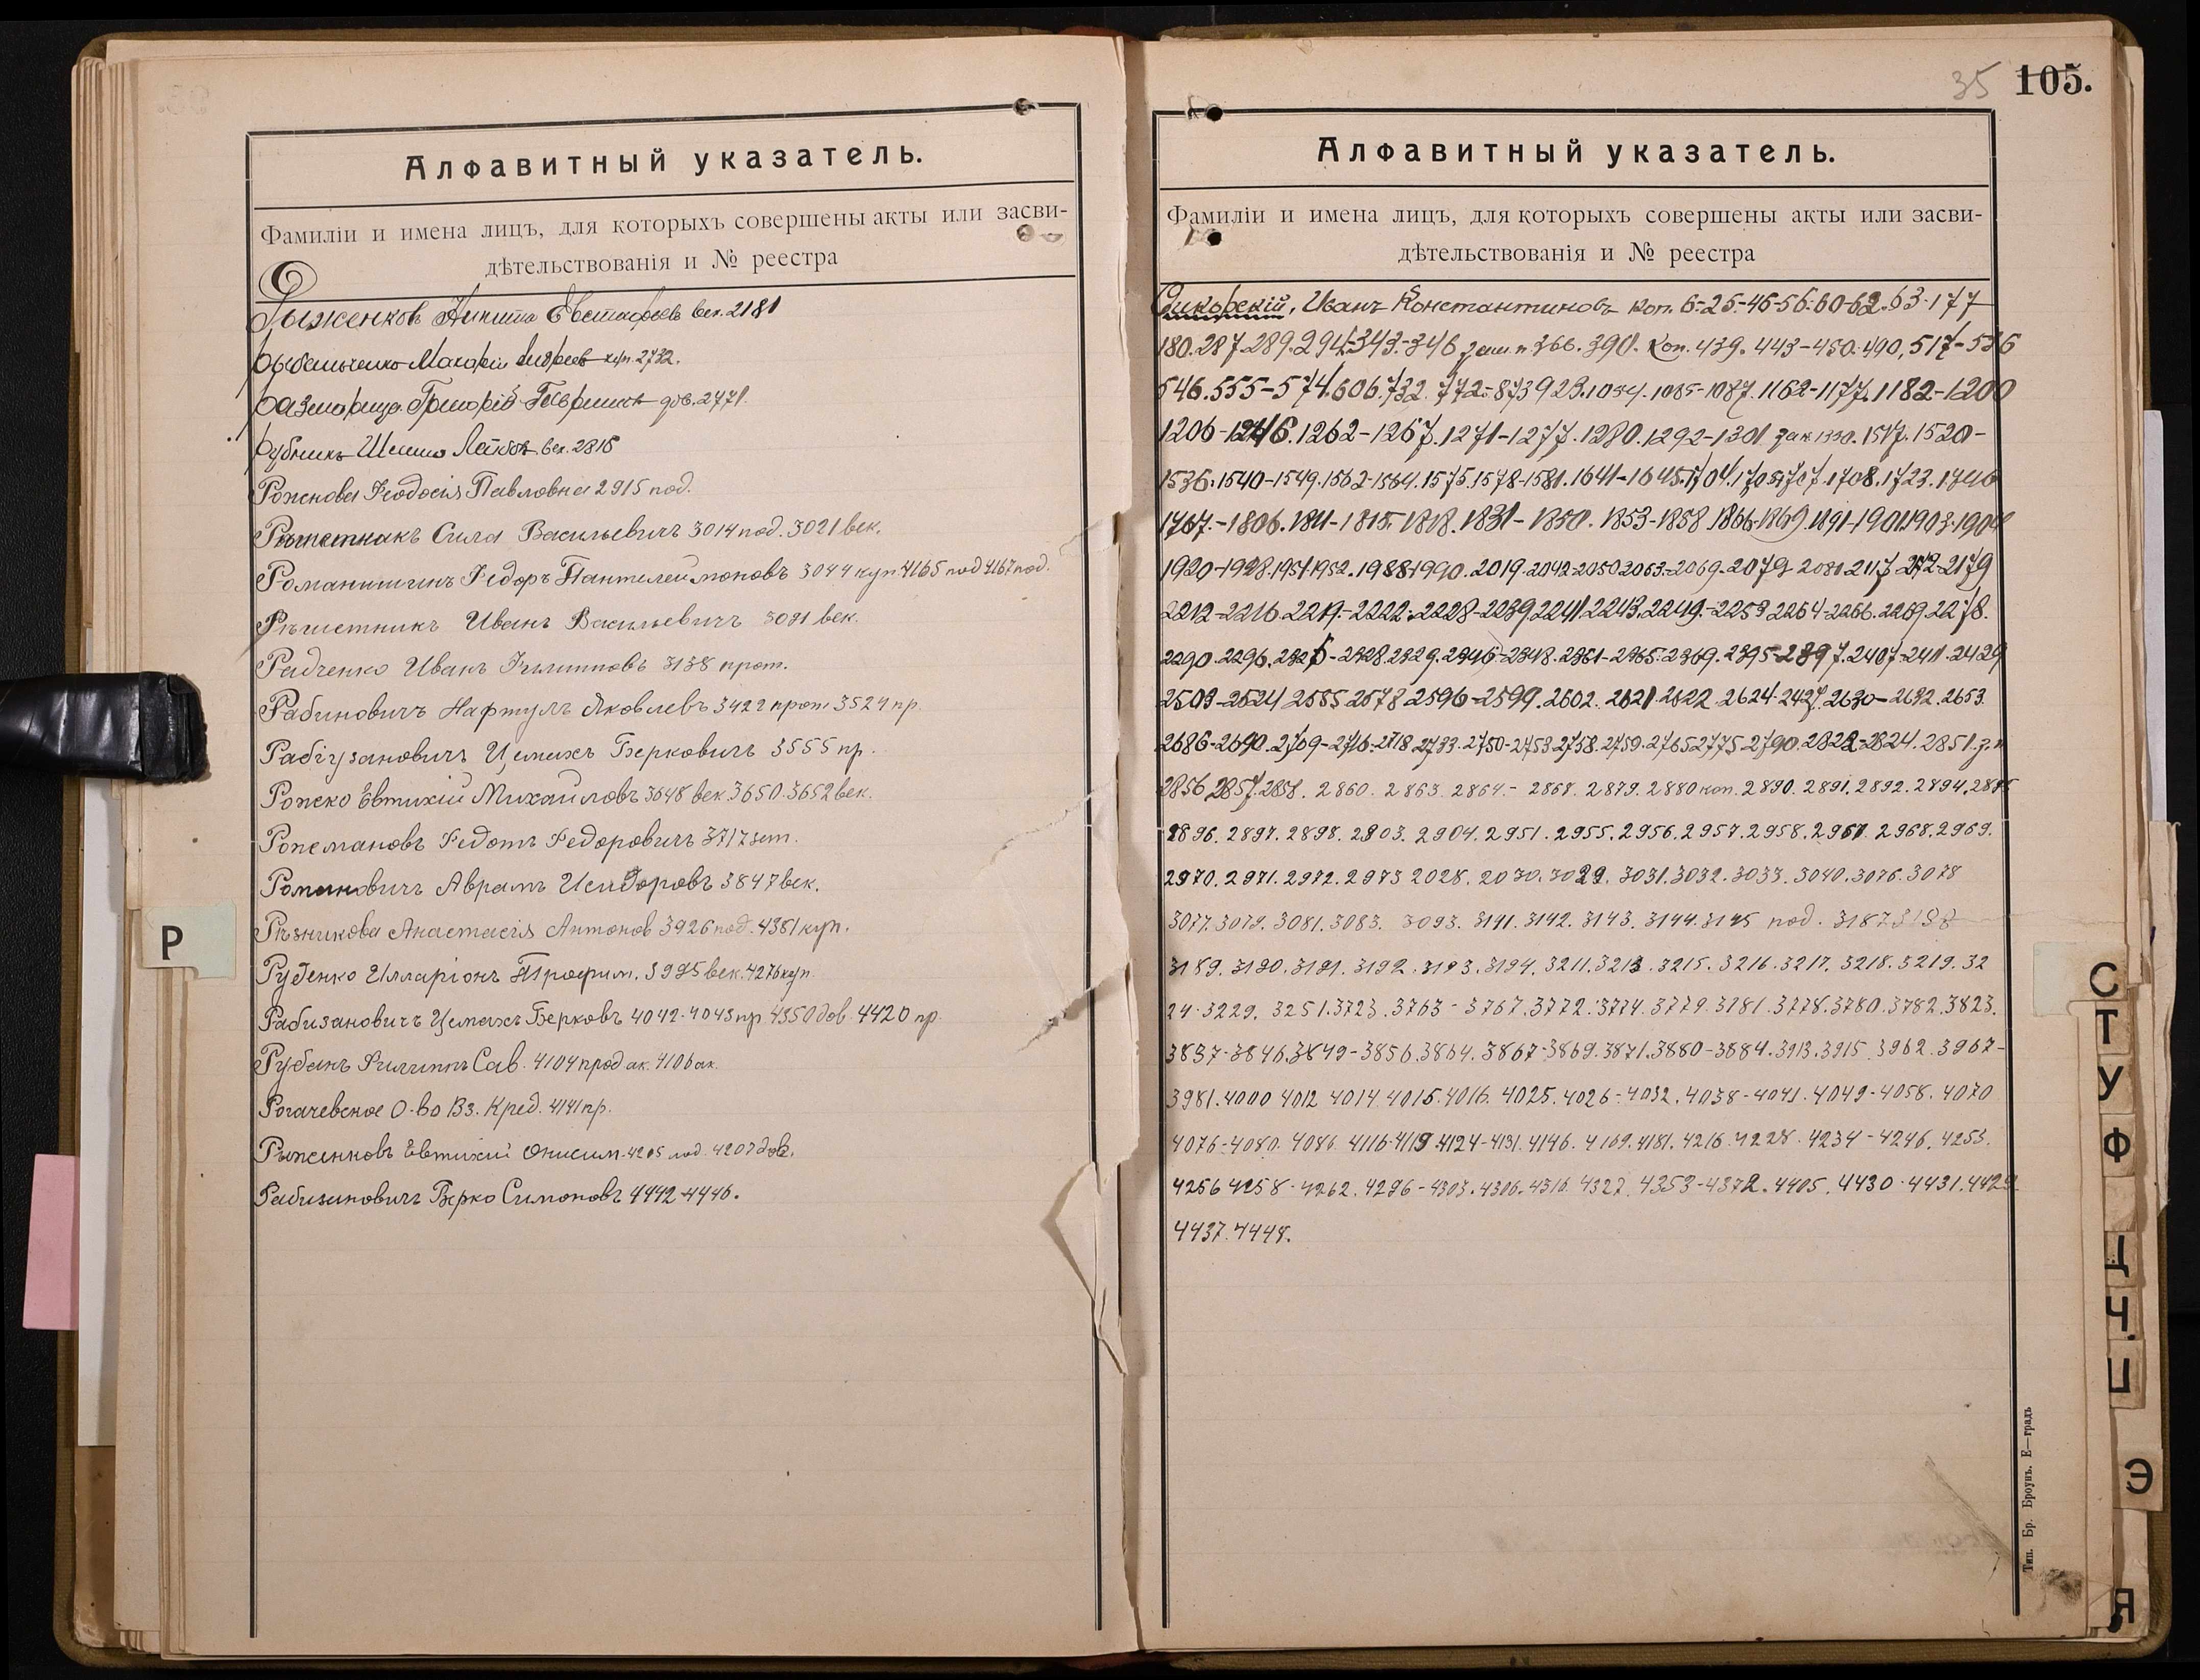 Алфавитный указатель.
Фамиліи и имена лицъ, для которыхъ совершены акты или засви-
дѣтельствованія и № реестра
Рыженковъ Никита Евстафьевъ век. 2181
Макарій Андреевъ куп. 2732.
Григорій Гавриловъ дов. 2771.
Рубникъ Лейбовъ век. 2818
Роженова Ѳеодосія Павловна 2915 под.
Сила Васильевичъ 3014 под. 3021 век.
Романишинъ Ѳедоръ Пантелеймоновъ 3044 куп. 4165 под 4167 под.
Рѣшетникъ Иванъ Васильевичъ 3091 век.
Радченко Иванъ Филипповъ 3138 прот.
Рабиновичъ Нафтулъ Яковлевъ 3422 прот 3524 пр.
Рабизановичъ Цемахъ Берковичъ 3555 пр.
Рожко Евтихій Михайловъ 3648 век 3650. 3652 век.
Рожмановъ Ѳедотъ Ѳедоровичъ 3717
Романовичъ Аврамъ Исидоровъ 3847 век.
Рѣзникова Анастасія Антонов 3926 под. 4381 куп.
Руденко Илларіонъ Трофим. 3985 век. 4276 куп
Рабизановичъ Цемахъ Берковъ 4042-4043 пр 4350 дов. 4420 пр.
Рубанъ Филиппъ Сав. 4104 прод ак. 4106 ак.
Рогачевское О-во Вз. Кред. 4141 пр.
Рыженковъ Евтихій Онисим. 4205 под. 4207 дов.
Рабизановичъ Берко Симоновъ 4442-4446.
Р
35 105.
Алфавитный указатель.
Фамиліи и имена лицъ, для которыхъ совершены акты или засви-
дѣтельствованія и № реестра
Сикорскій, Иванъ Константиновъ коп. 6-25-46-56-60-62. 63-177
180. 287-289. 294-343-346 366. 390. Коп. 439. 443-450. 490, 517-536
546. 555-574. 606. 732. 772-873 923. 1034. 1085-1087. 1162-1177. 1182-1200
1206- 1262-1267. 1271-1277. 1280. 1292-1301. 1517. 1520-
1536. 1540-1549. 1562-1564. 1575. 1578-1581. 1641-1645. 1704. 1707. 1708. 1723. 1746
1767.-1806. 1811-1815. 1818. 1831-1850. 1853-1858 1866-1869. 1891-1901. 1903-1904
1920-1928. 1951. 1952. 1988-1990. 2019. 2042-2050 2063-2069. 2079 2081 2117 2179
2212-2216. 2219-2222. 2228-2239 2241 2243. 2249.-2253 2264-2266. 2269. 2278.
2290. 2296. 2328. 2329. 2348. 2361-2365. 2369. 2395-2397. 2407-2411. 2429
2509-2524 2585 2578 2596-2599. 2602. 2621. 2622. 2624. 2427. 2630-2632. 2653.
2686-2690. 2709-2716. 2718. 2733. 2750-2753. 2758. 2759. 2765 2775. 2790. 2822-2824. 2851.
2856 2857. 2858. 2860. 2863. 2864.-2868. 2879. 2880 коп. 2890. 2891. 2892. 2894. 2895
2896. 2897. 2898. 2903. 2904. 2951. 2955. 2956. 2957. 2958. 2967. 2968. 2969.
2970. 2971. 2972. 2973 2028. 2030. 3029. 3031. 3032. 3033. 3040. 3076. 3078
3077. 3079. 3081. 3083. 3093. 3191. 3142. 3143. 3144. 3145 под. 3187 3188
3189. 3190. 3191. 3192. 3193. 3194. 3211. 3213. 3215. 3216. 3217. 3218. 3219. 32
24-3229. 3251. 3723. 3763-3767. 3772. 3774. 3779. 3781. 3778. 3780. 3782. 3823.
3837-3846. 3849-3856. 3864. 3867-3869. 3871. 3880-3884. 3913. 3915. 3962. 3967-
3981. 4000 4012 4014 4015. 4016. 4025. 4026-4032. 4038-4041. 4049-4058. 4070
4076-4080. 4086. 4116-4119 4124-4131. 4146. 4169. 4181. 4216. 4228. 4234-4246. 4253.
4256 4258-4262. 4296-4303. 4306-4310. 4327. 4353-4372. 4405. 4430. 4431. 4429
4437. 4448.
Тип. Бр. Броунъ. Е—градъ
С
Т
У
Ф
Ц
Ч
Э
Я